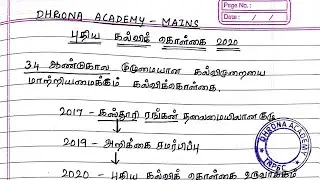 DHRONA ACADEMY - MAINS
Page No.:
Date:
புதிய கல்விக் கொள்கை 2020
34 ஆண்டுகால முழுமையான கல்விமுறையை
மாற்றியமைக்கும் கல்விக்கொள்கை.
2017 - கஸ்தூரி ரங்கன் தலைமையிலான குழு
2019 - அறிக்கை சமர்ப்பிப்பு
2020 - புதிய கல்விக் கொள்கை உருவாக்கம்
DHRONA ACADEMY